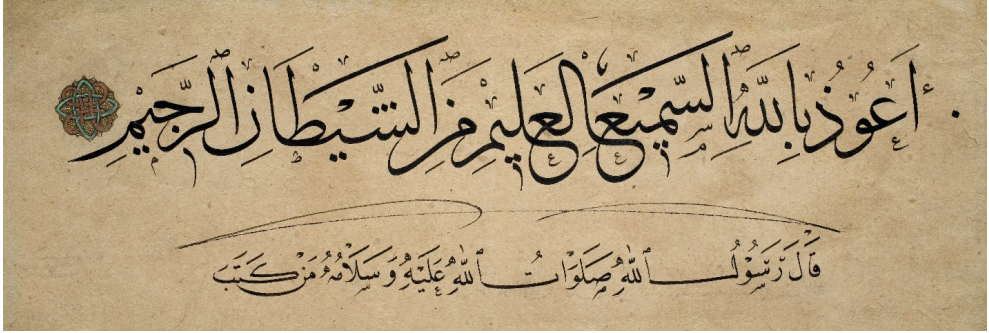 اَعُوذُ بِاللّٰهِ السَّمِيْعِ الْعَلِيْمِ مِنَ الشَّيْطَانِ الرَّجِيْمِ
قَالَ رَسُوْلُ اللّٰهِ صَلَوَاتُ اللّٰهِ عَلَيْهِ وَسَلَامُهُ مَنْ كَتَبَ